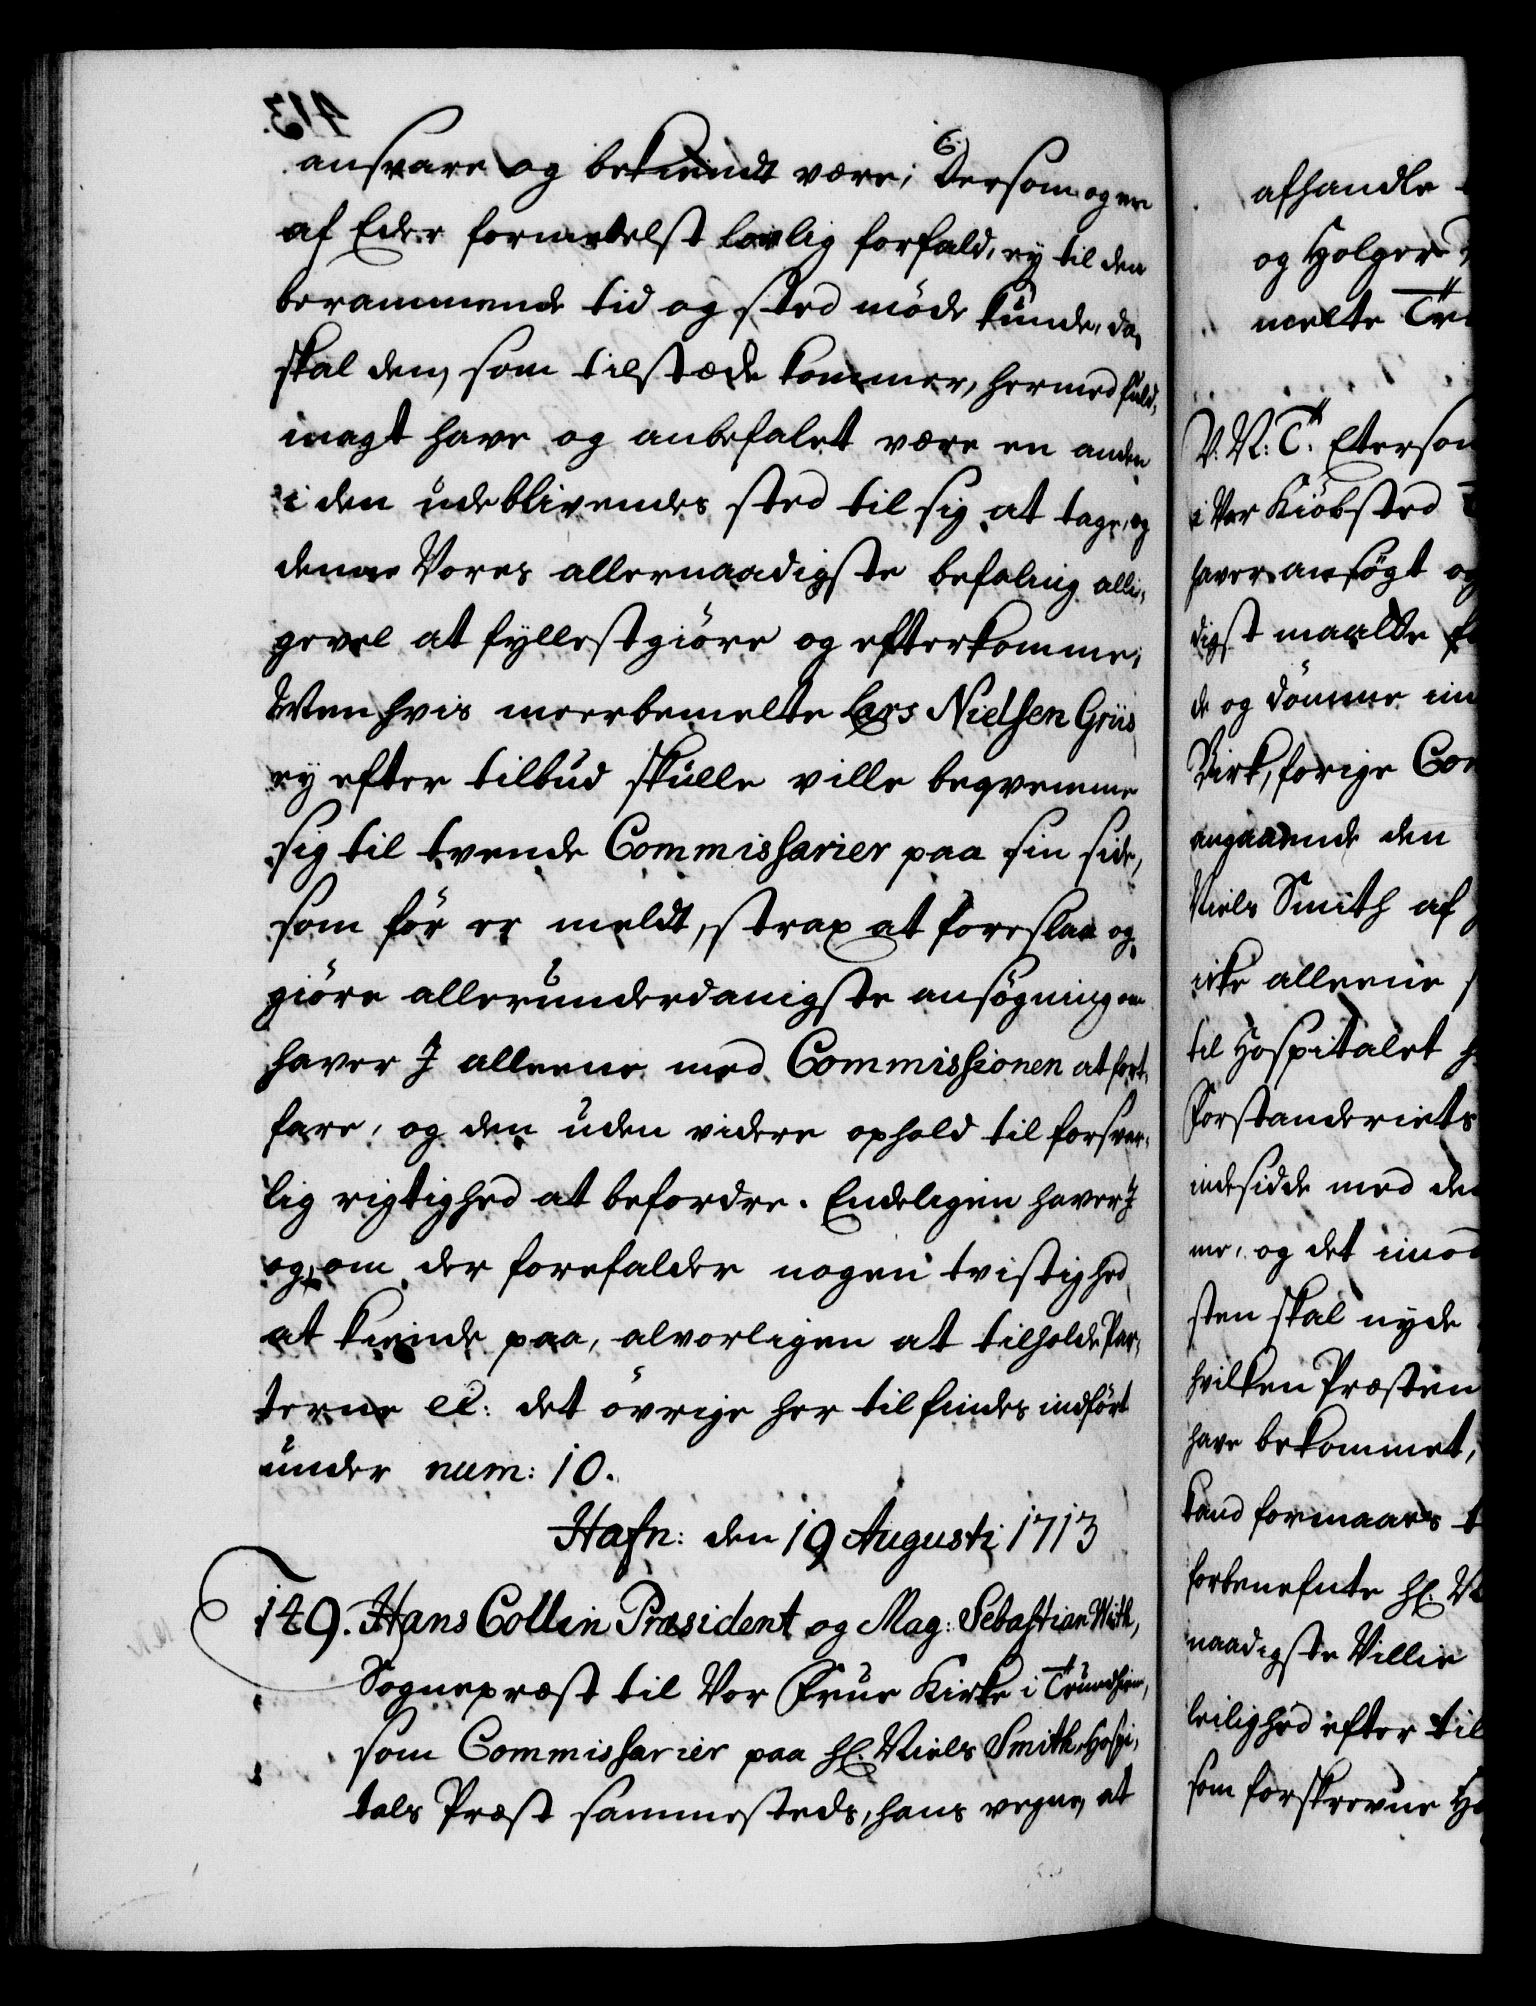 413.
ansvare og bekiendt være; Dersom og en
af Eder formedelst lovlig forfald, ey til den
berammende tid og sted møde kunde, da
skal den, som tilstæde kommer, hermed fuld-
magt have og anbefalet være en anden
i den udeblivendes sted til sig at tage, og
denne Vores allernaadigste befaling alli-
gevel at fyllestgiöre og efterkomme;
Men hvis meerbemelte Lars Nielsen Griis
ey efter tilbud skulle ville beqvemme
sig til tvende Commissarier paa sin side,
som før er meldt, strax at foreslaa og
giöre allerunderdanigste ansøgning om
haver I alleene med Commissionen at fort-
fare, og den uden videre ophold til forsvar-
lig rigtighed at befordre. Endeligen haver I
og, om der forefalder nogen tvistighed
at kiende paa, alvorligen at tilholde Par-
terne etc: det övrige her til findes indført
under num: 10.
Hafn: den 19 Augusti 1713
149. Hans Collin Præsident og Mag: Sebastian With,
Sognepræst til Vor Frue Kirke i Trundhiem,
som Commissarier paa Hr. Niels Smith, Hospi-
tals Præst sammesteds, hans vegne, at
afhandle
og Holger
melte Tr
V. N: T. Eterson
i Vor Kiöbsted
haver ansøgt og
digst maatte
de og dömme im
Birk, forige Com
angaaende den
Niels Smith af
icke alleene
til Hospitalet
Forstanderiets
indesidde med den
me, og det imod
sten skal nyde
hvilken Præsten
have bekommet,
kand formaaes
forbenefnte Hr. N
naadigste Villie
leilighed efter til
som forskrevne Ho